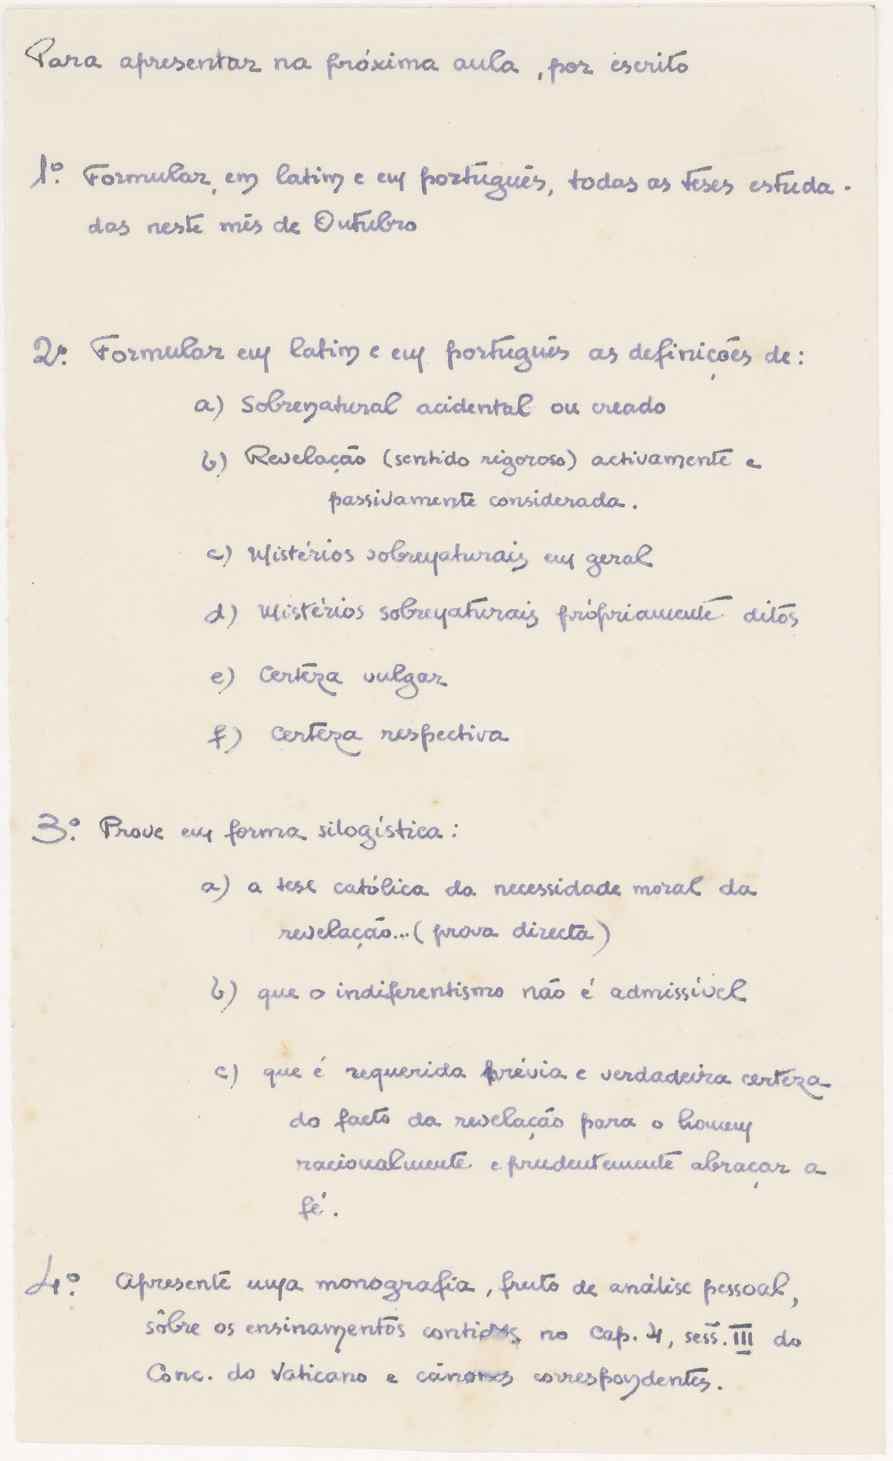 Para apresentar na próxima aula, por escrito
1º. Formular, em latim e em português, todas as teses estuda-
das neste mês de Outubro
2º. Formular em latim e em português as definições de:
a) Sobrenatural acidental ou creado
b) Revelação (sentido rigoroso) activamente e
passivamente considerada.
c) Mistérios sobrenaturais em geral
d) Mistérios sobrenaturais própriamente ditos
e) Certeza vulgar
f) Certeza respectiva
3º. Prove em forma silogística:
a) a tese católica da necessidade moral da
revelação...(prova directa)
b) que o indiferentismo não é admissível
c) que é requerida prévia e verdadeira certeza
do facto da revelação para o homem
racionalmente e prudentemente abraçar a
fé.
4º. Apresente uma monografia, fruto de análise pessoal,
sôbre os ensinamentos contidos no Cap. 4, sess. III do
Conc. do Vaticano e cânones correspondentes.